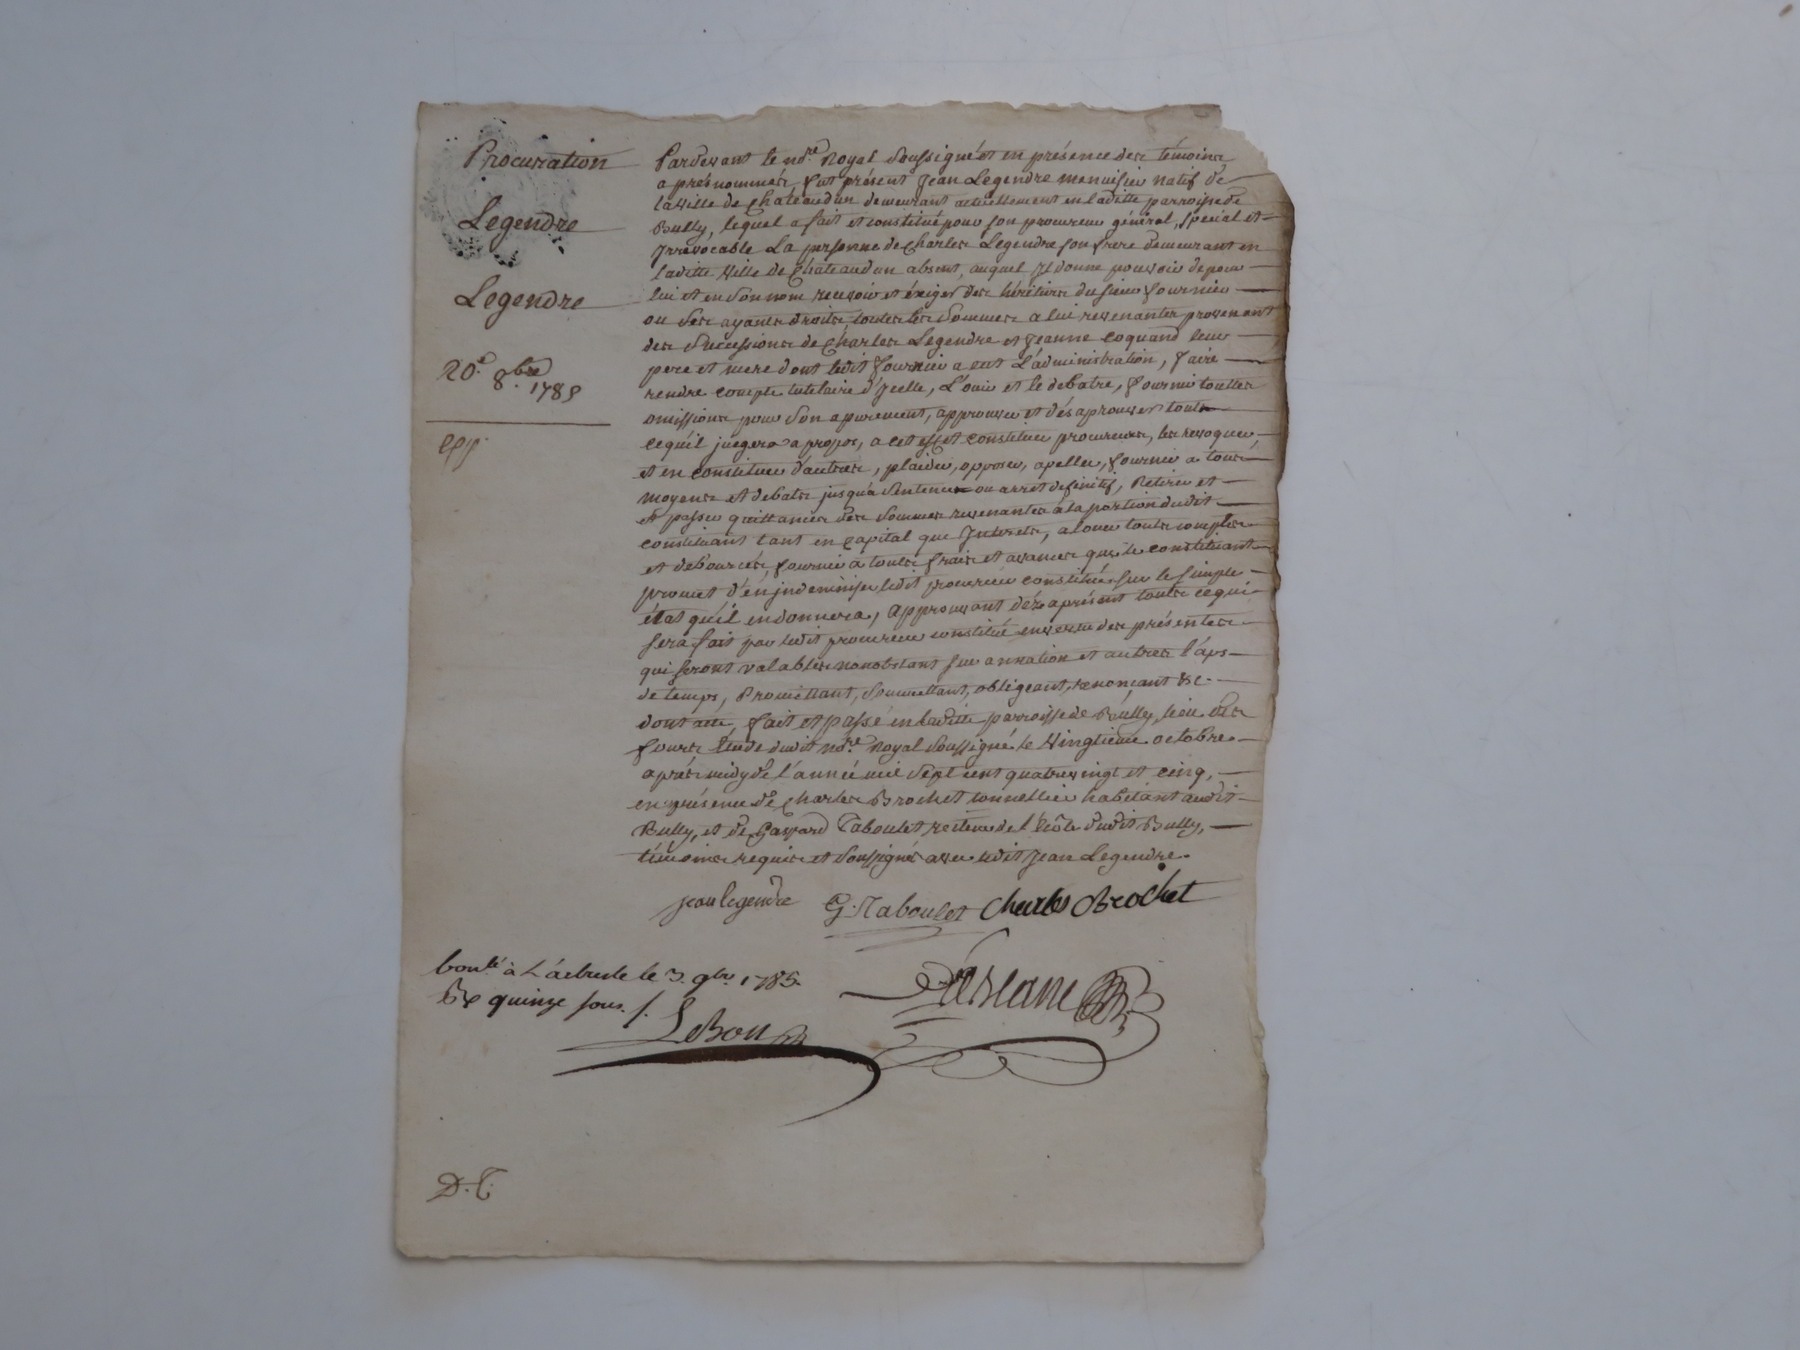 Procuration
Legendre
Legendre
20.e 8.bre 1785
Pardevant le no.re Royal Soussigné et en présence des témoins
aprés nommés, fut présent Jean Legendre menuisier natif de
la Ville de Châteaudun demeurant actuellement en laditte parroisse de
Bully, lequel a fait et constitué pour son procureur général, spécial et
Jrrévocable La personne de Charles Legendre son frere demeurant en
laditte Ville de Châteaudun absent, auquel Jl donne pouvoir de pour
lui et en Son nom recevoir et éxiger des héritiers du sieur fournier
ou Ses ayants droits, toutes les Sommes a lui revenantes provenant
des Successions de Charles Legendre et Jeanne Coquand leur
pere et mere dont ledit fournier a eut L'administration, faire
rendre compte tutelaire d'Jcelle, L'ouir et le debatre, fournir touttes
omissions pour Son apurement, approuver et désaprouver tout
ce qu'il juegera apropos, a cet effet constituer procureurs, les revoquer,
et en constituer d'autres, plaider, opposer, apeller, fournir a tous
moyens et debats jusqu'a Sentence ou arret definitif, Retirer et
et passer quittances des Sommes revenantes a la portion dudit
constituant tant en capital que Jnterets, alouer touts comptes
et debourcés, fournir a touts frais et avances que le constituant
promet d'en jndemniser ledit procureur constitué Sur le simple
état qu'il en donnera, approuvant dèz aprésent touts ce qui
sera fait par ledit procureur constitué en vertu des présentes
qui seront valables nonobstant surannation et autres l'aps
de temps, Promettant, Soumettant, obligeant, renonçant &c.
dont acte, fait et passé en laditte parroisse de Bully, lieu des
fours Etude dudit no.re Royal Soussigné le Vingtieme octobre
aprés midy de l'année mil Sept cent quatrevingt et cinq,
en présence de Charles Brochet tonnellier habitant audit
Bully, et de Gaspard Taboulet recteur de l'Ecôle dudit Bully,
témoins requis et Soussignés avec ledit Jean Legendre.
jean legendre G. Taboulet Charles Brochet
le 3. 9bre 1785.
quinze sous.
LeBon
D.T.